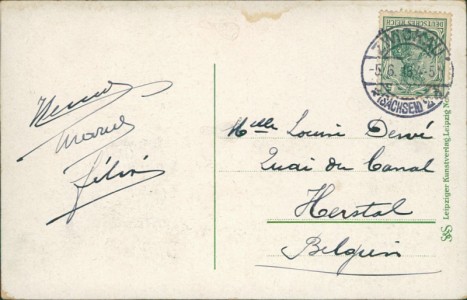 DEUTSCHES REICH
ZWICKAU
(SACHSEN)
Marcel
Félix
Melle Louise Dewé
Quai du Canal
Herstal
Belgien
Leipziger Kunstverlag, Leipzig